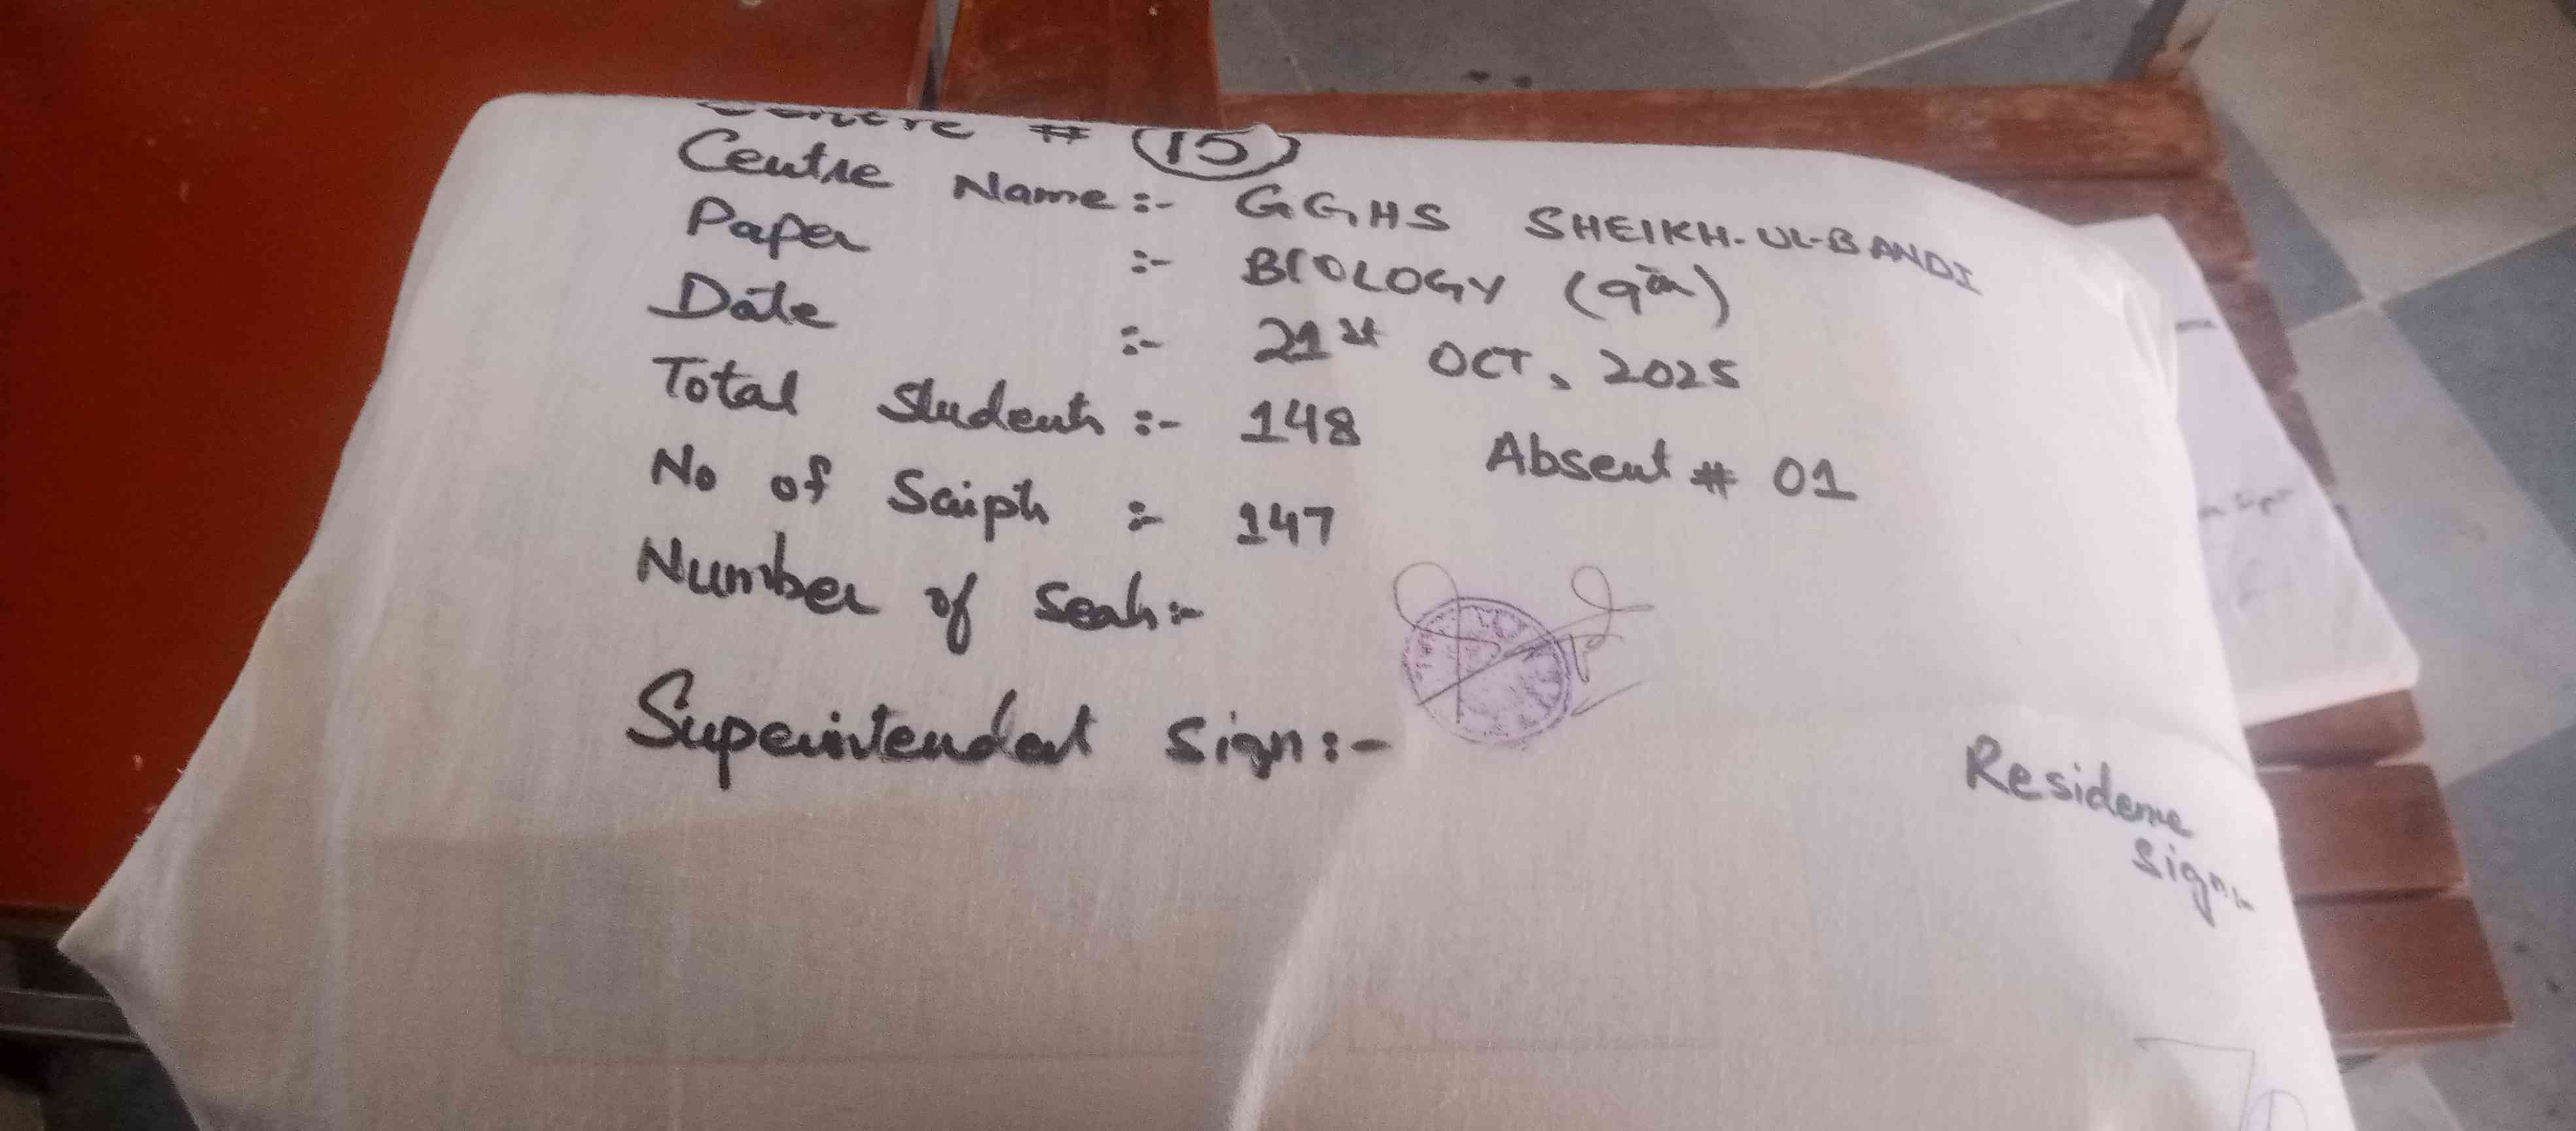 Centre # 15
Centre Name :- GGHS SHEIKH-UL-BANDI
Paper :- BIOLOGY (9th)
Date :- 21st OCT, 2025
Total Students :- 148 Absent # 01
No of Scripts :- 147
Number of Seals :-
Superintendent Sign :-
Residence Sign :-